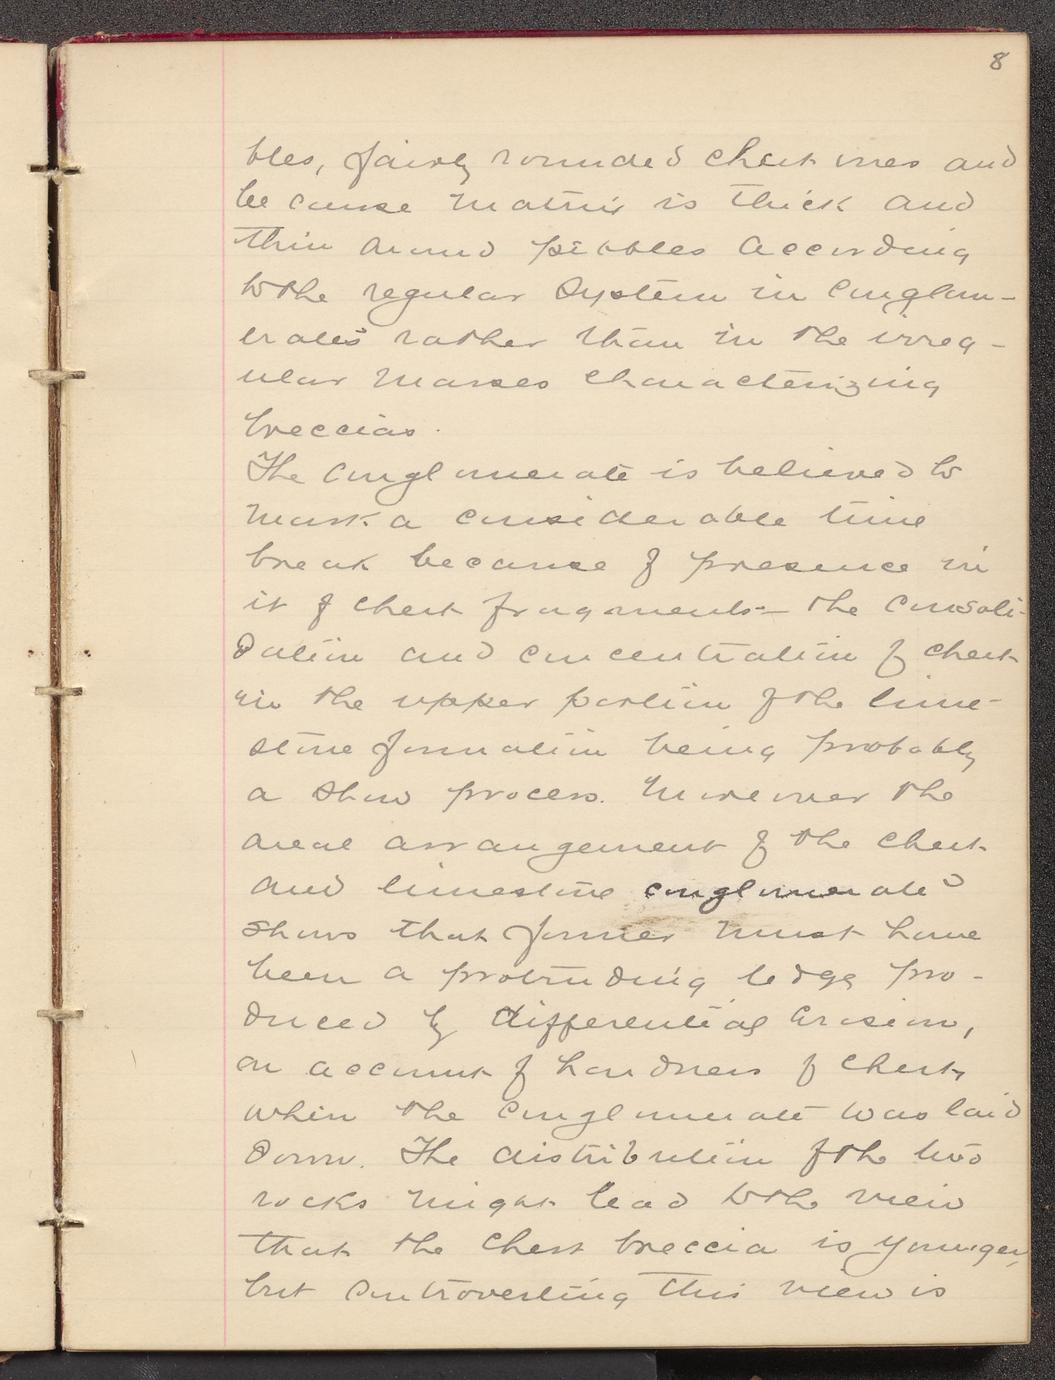 8
bles, fairly rounded chert ones and
because matrix is thick and
thin around pebbles according
to the regular system in conglom-
erates rather than in the irreg-
ular masses characterizing
breccias.
The conglomerate is believed to
mark a considerable time
break because of presence in
it of chert fragments – the consoli-
dation and concentration of chert
in the upper portion of the lime-
stone formation being probably
a slow process. Moreover the
areal arrangement of the chert
and limestone conglomerate
shows that former must have
been a protruding ledge pro-
duced by differential erosion,
on account of hardness of chert,
when the conglomerate was laid
down. The distribution of the two
rocks might lead to the view
that the chert breccia is younger,
but controverting this view is